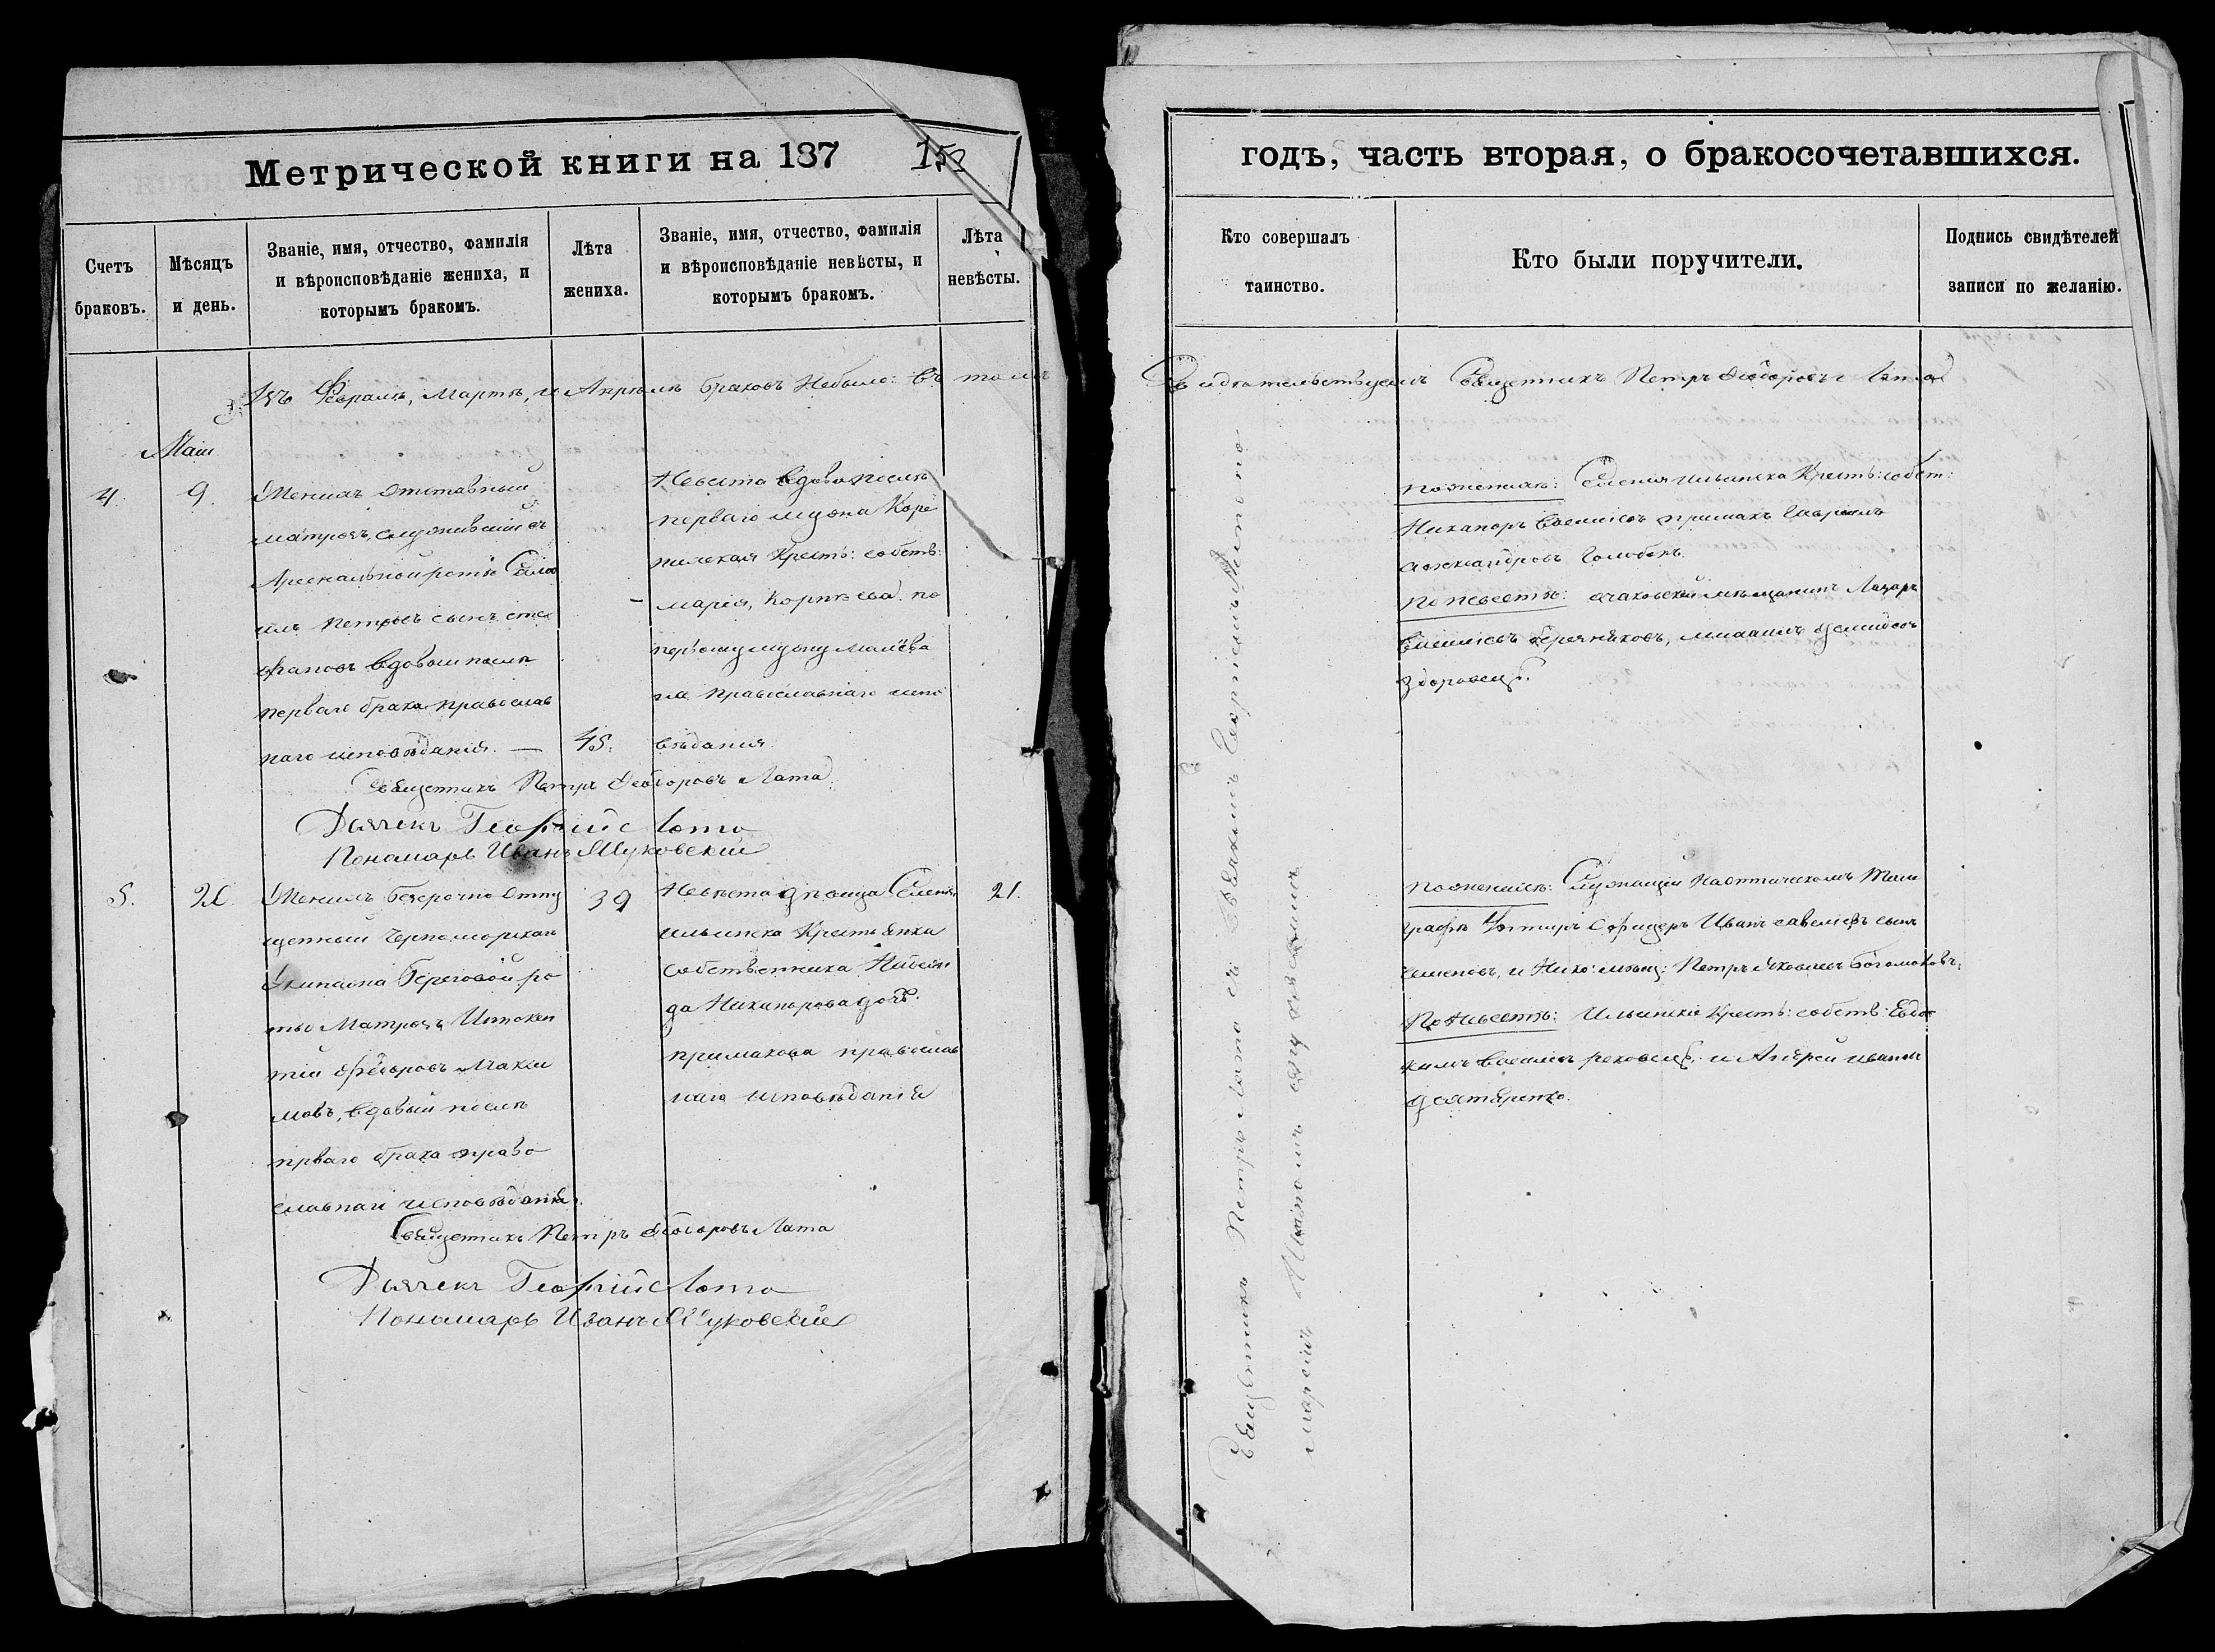 Метрической книги на 187
152
Счетъ браковъ.
Мѣсяцъ и день.
Званіе, имя, отчество, фамилія
и вѣроисповѣданіе жениха, и
которымъ бракомъ.
Лѣта
жениха.
Званіе, имя, отчество, фамилія
и вѣроисповѣданіе невѣсты, и
которымъ бракомъ.
Лѣта
невѣсты.
Въ Февралѣ, Мартѣ, и Апрѣлѣ браковъ Небыло: въ томъ
Маія
4.
9.
Женихъ Отставный
матрозъ, служившій въ
Арсенальной ротѣ
Петровъ сынъ Сте
фановъ вдовый послѣ
перваго брака православ
наго исповѣданія. —
45.
Невѣста вдова послѣ
перваго мужа Коре
Кресть: собств:
марія, Корнѣева по
первому мужу
па православнаго испо
вѣданія
Священникъ Петръ Феодоровъ Лата
Дьячекъ Георгій Лото
Пономарь Иванъ Жуковскій
5.
Женихъ безсрочно Отпу
щенный Черноморскаго
Экипажа береговой ро
ты Матрозъ Инокен
тій Федоровъ Макси
мовъ, вдовый послѣ
перваго брака право
славнаго исповѣданія.
39
Невѣста дѣвица Селенія
ильинска Крестьянка
собственника
да Никанорова дочь.
примакова православ
наго исповѣданія
21.
Священникъ Петръ Феодоровъ Лата
Дьячекъ Георгій Лото
Пономарь Иванъ Жуковскій
годъ, часть вторая, о бракосочетавшихся.
Кто совершалъ
таинство.
Кто были поручители.
Подпись свидѣтелей
записи по желанію.
Свидѣтельствуемъ Священникъ Петръ Феодоровъ Лата
По женихѣ: Селенія ильинска Кресть: собст:
Никаноръ Василіевъ примакъ Гавріилъ
александровъ Голобокъ
По невестѣ: очаковскій мѣщанинъ Лазарь
Василіевъ михаилъ
По женихѣ: Служащій Наоптическомъ Теле
графѣ Унтеръ Офицеръ Иванъ савеліевъ сынъ
семеновъ, и Нико: мѣщ: Петръ Яковлевъ Богомоловъ.
По Невестѣ: Ильинскіе Кресть: собств: Евдо
кимъ Василіевъ и Андрей ивановъ
дегтяренко.
Священникъ Петръ Лата съ